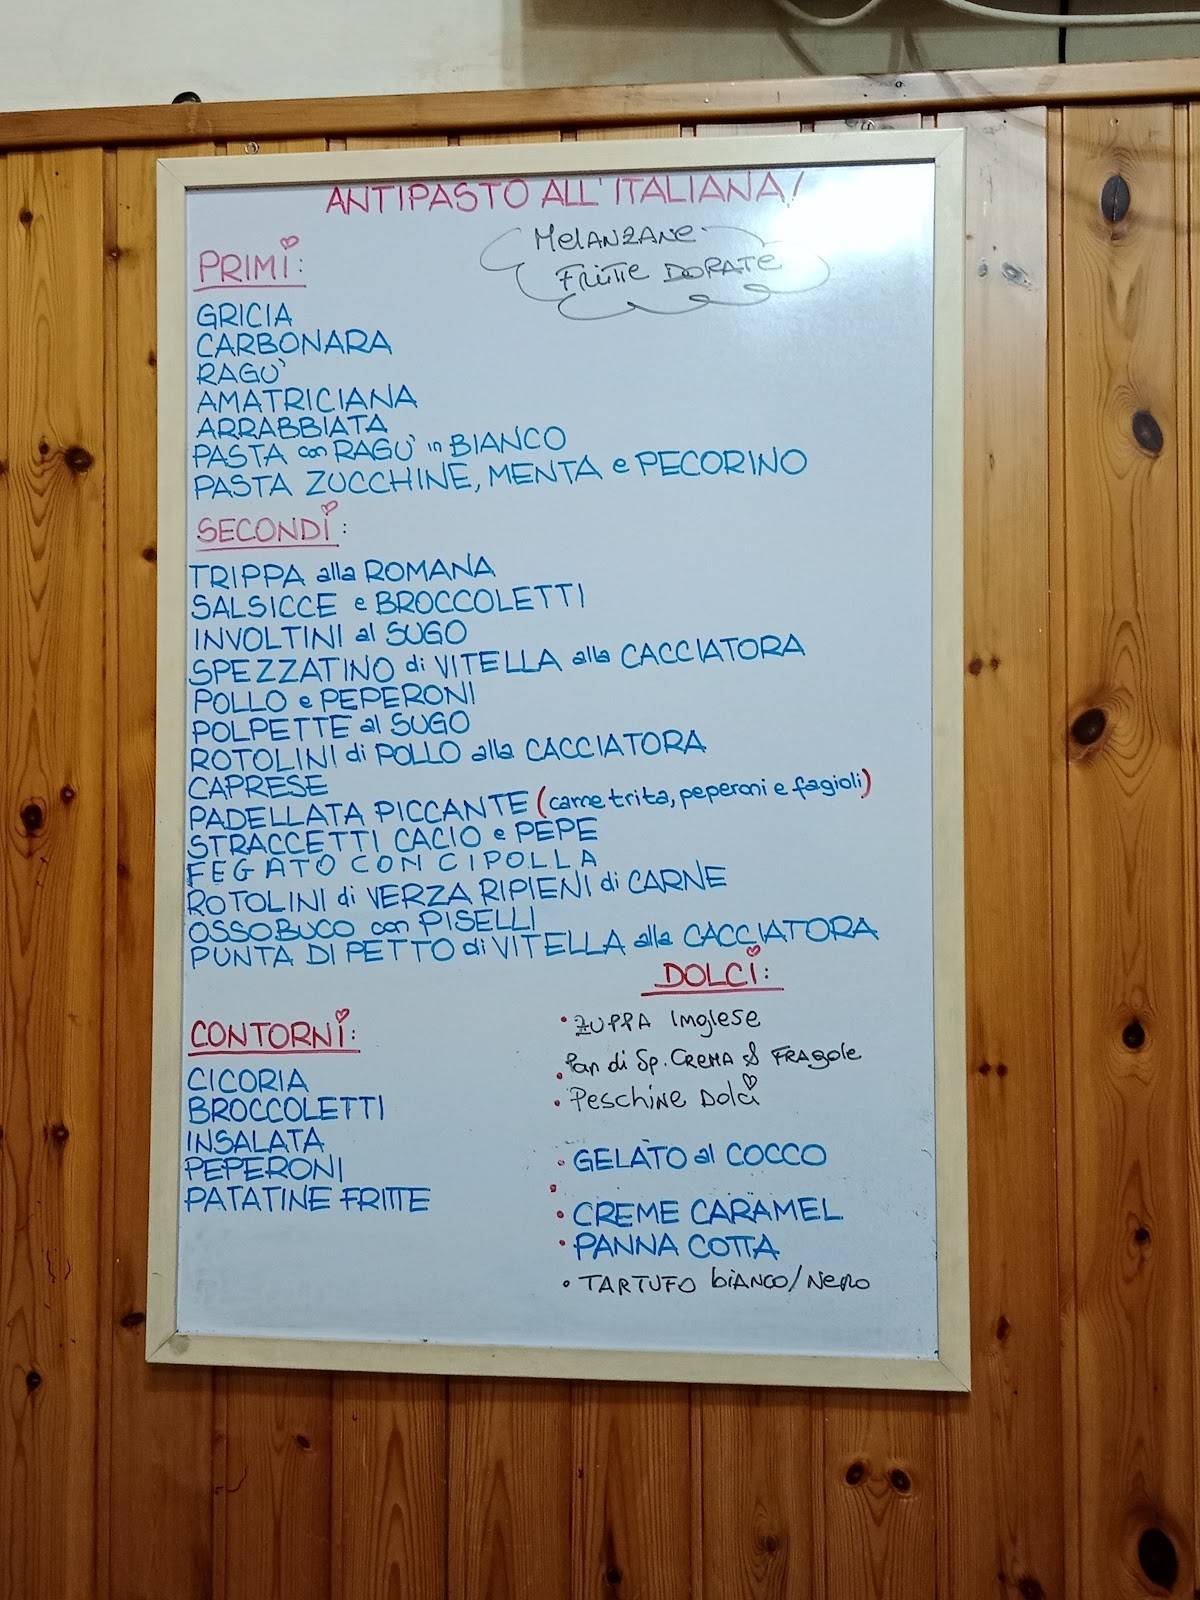 ANTIPASTO ALL'ITALIANA!
MELANZANE
FRITTE DORATE
PRIMi:
GRICIA
CARBONARA
RAGU'
AMATRICIANA
ARRABBIATA
PASTA con RAGU' in BIANCO
PASTA ZUCCHINE, MENTA e PECORINO
SECONDi:
TRIPPA alla ROMANA
SALSICCE e BROCCOLETTI
INVOLTINI al SUGO
SPEZZATINO di VITELLA alla CACCIATORA
POLLO e PEPERONI
POLPETTE al SUGO
ROTOLINI di POLLO alla CACCIATORA
CAPRESE
PADELLATA PICCANTE (carne trita, peperoni e fagioli)
STRACCETTI CACIO e PEPE
FEGATO CON CIPOLLA
ROTOLINI di VERZA RIPIENI di CARNE
OSSOBUCO con PISELLI
PUNTA DI PETTO di VITELLA alla CACCIATORA
CONTORNi:
CICORIA
BROCCOLETTI
INSALATA
PEPERONI
PATATINE FRITTE
DOLCi:
• ZUPPA Inglese
• Pan di Sp. CREMA & FRAGole
• Peschine Dolci
• GELATO al COCCO
•
• CREME CARAMEL
• PANNA COTTA
• TARTUFO biANCO/NERO